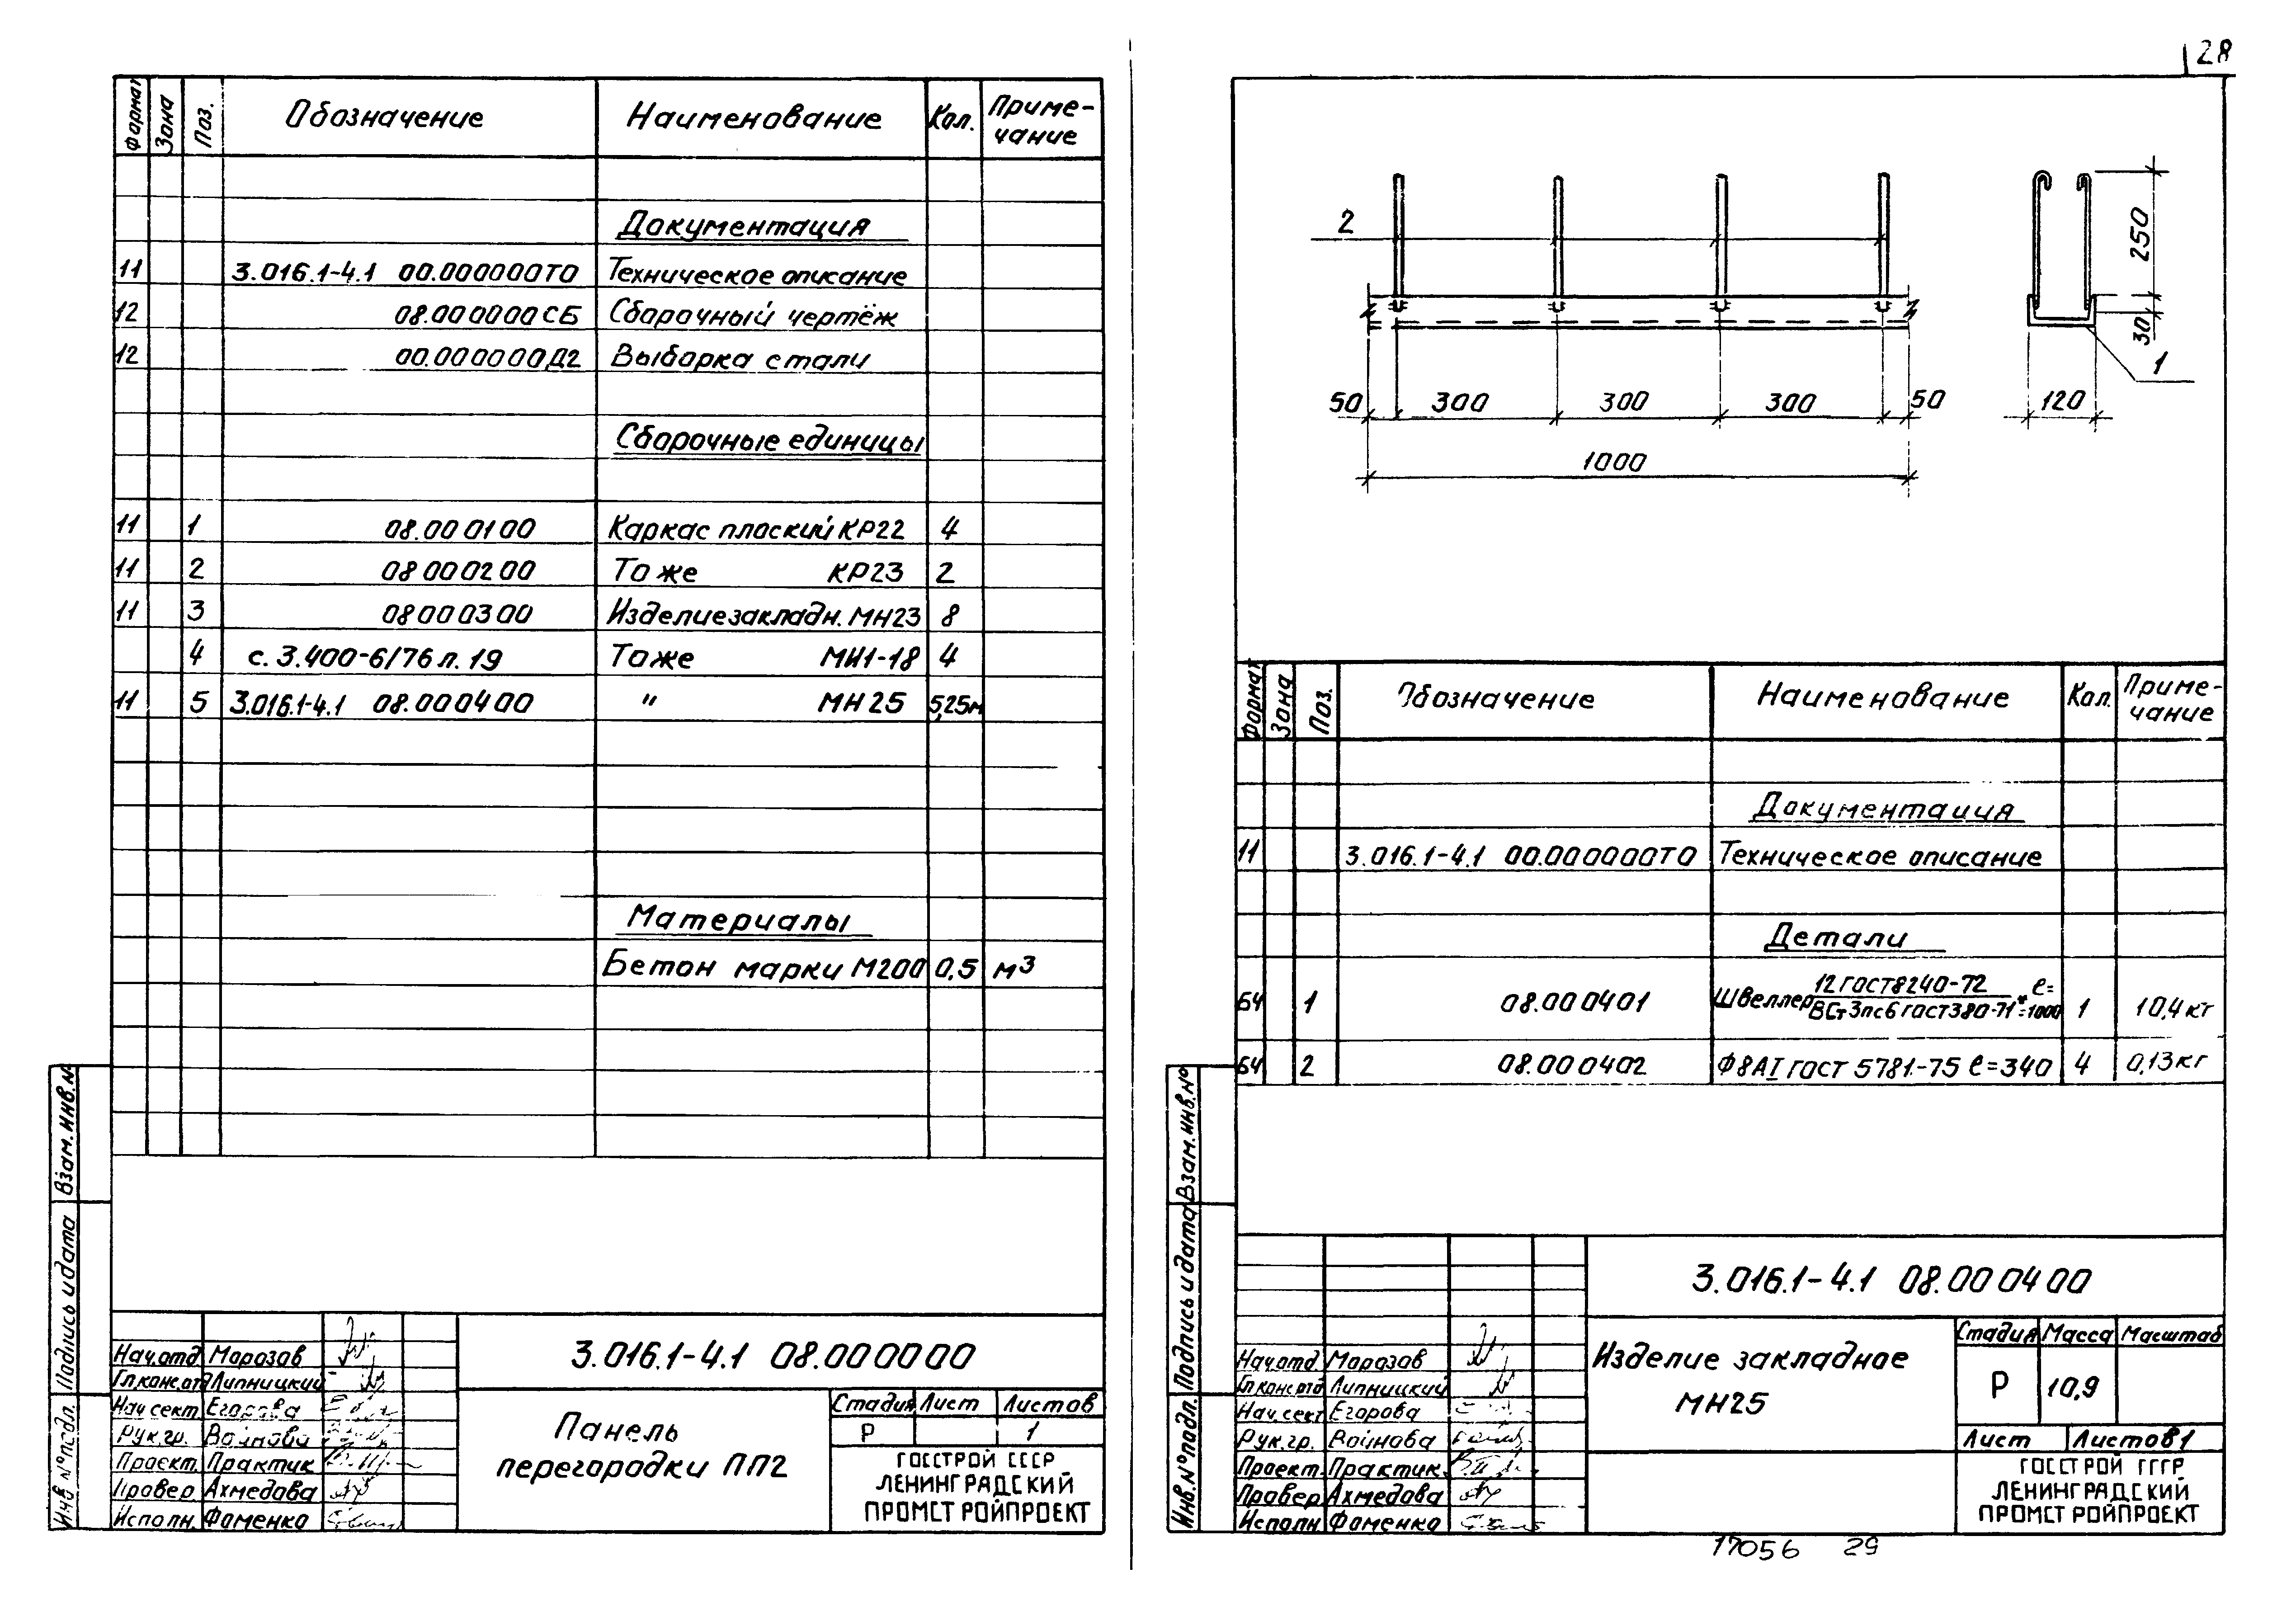 28
Формат Зона Поз. Обозначение Наименование Кол. Приме-
чание
Документация
11 3.016.1-4.1 00.000000ТО Техническое описание
12 08.000000СБ Сборочный чертёж
12 00.000000Д2 Выборка стали
Сборочные единицы
11 1 08.000100 Каркас плоский КР22 4
11 2 08000200 Тоже КР23 2
11 3 08000300 Изделие закладн. МН23 8
4 с. 3.400-6/76 л. 19 Тоже МИ1-18 4
11 5 3.016.1-4.1 08.000400 " МН25 5,25м
Материалы
Бетон марки М200 0,5 м³
Взам. инв. №
Подпись и дата
Инв № подл.
Нач.отд Морозов
Гл.конс.отд Липницкий
Нач сект. Егорова
Рук.гр. Войнова
Проект. Практик
Провер. Ахмедова
Исполн. Фоменко
3.016.1-4.1 08.000000
Панель
перегородки ПП2
Стадия Лист Листов
Р 1
ГОССТРОЙ СССР
ЛЕНИНГРАДСКИЙ
ПРОМСТРОЙПРОЕКТ
2
250
30
1
50 300 300 300 50 120
1000
Формат Зона Поз. Обозначение Наименование Кол. Приме-
чание
Документация
11 3.016.1-4.1 00.000000ТО Техническое описание
Детали
БЧ 1 08.000401 Швеллер 12 ГОСТ 8240-72 / ВСт3пс6 ГОСТ 380-71* ℓ= =1000 1 10,4 кг
БЧ 2 08.000402 Ф8АI ГОСТ 5781-75 ℓ=340 4 0,13 кг
Взам. инв. №
Подпись и дата
Инв. № подл.
3.016.1-4.1 08.000400
Нач.отд Морозов
Гл.конс.отд Липницкий
Нач.сект Егорова
Рук.гр. Войнова
Проект. Практик
Провер Ахмедова
Исполн Фоменко
Изделие закладное
МН25
Стадия Масса Масштаб
Р 10,9
Лист Листов 1
ГОССТРОЙ СССР
ЛЕНИНГРАДСКИЙ
ПРОМСТРОЙПРОЕКТ
17056 29